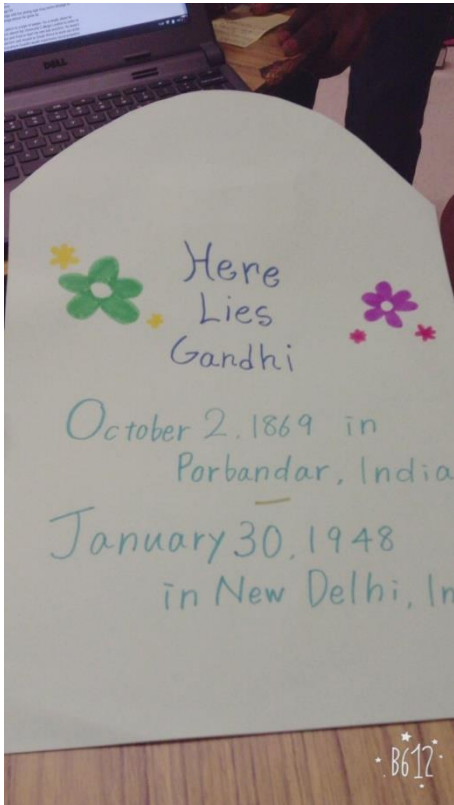 DELL
Here
Lies
Gandhi
October 2, 1869 in
Porbandar, India
–
January 30, 1948
in New Delhi, In
B612